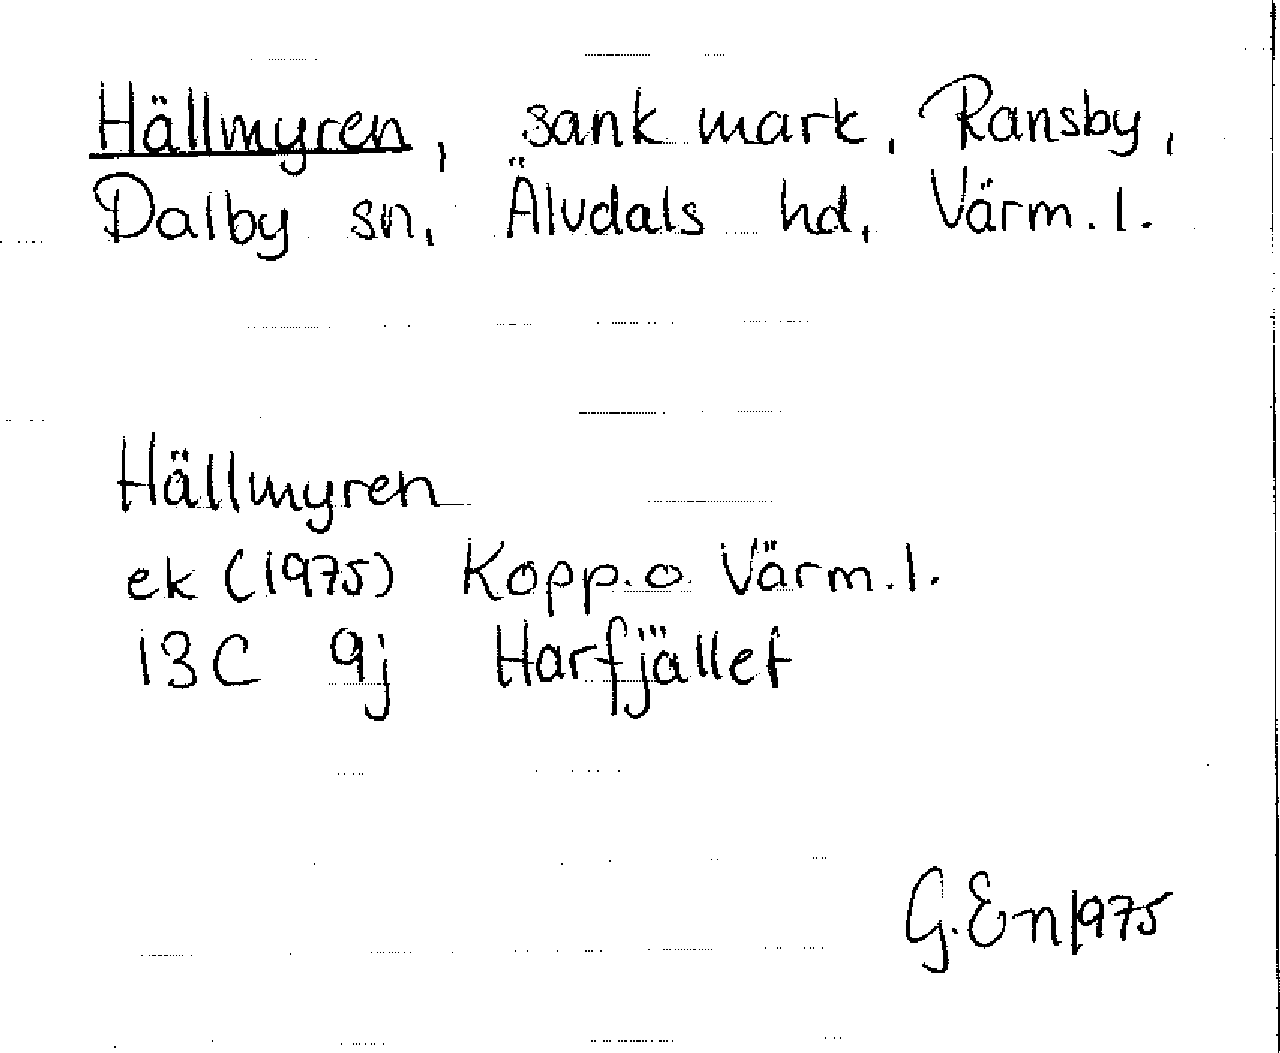 Hällmyren, sank mark, Ransby,
Dalby sn, Älvdals hd, Värm.l.
Hällmyren
ek (1975) Kopp. o. Värm.l.
13C 9j Harfjället
G.En 1975